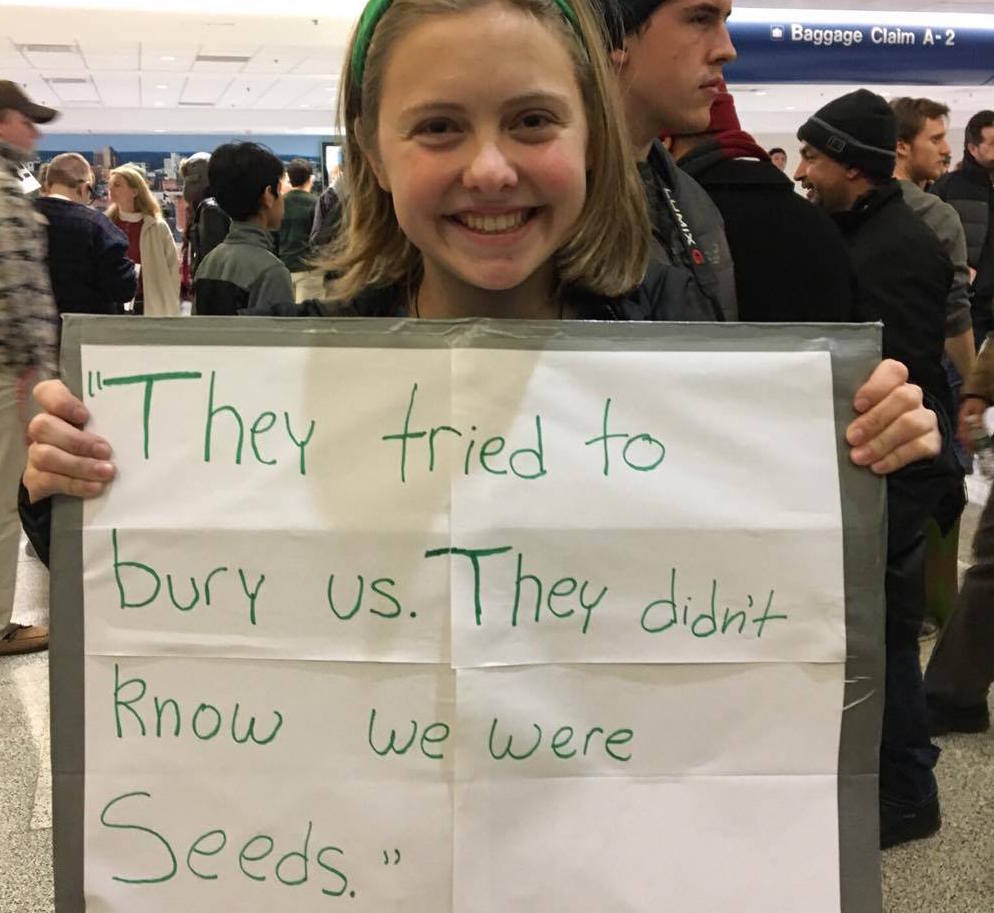 Baggage Claim A-2
LUMIX
"They tried to
bury us. They didn't
know we were
Seeds."